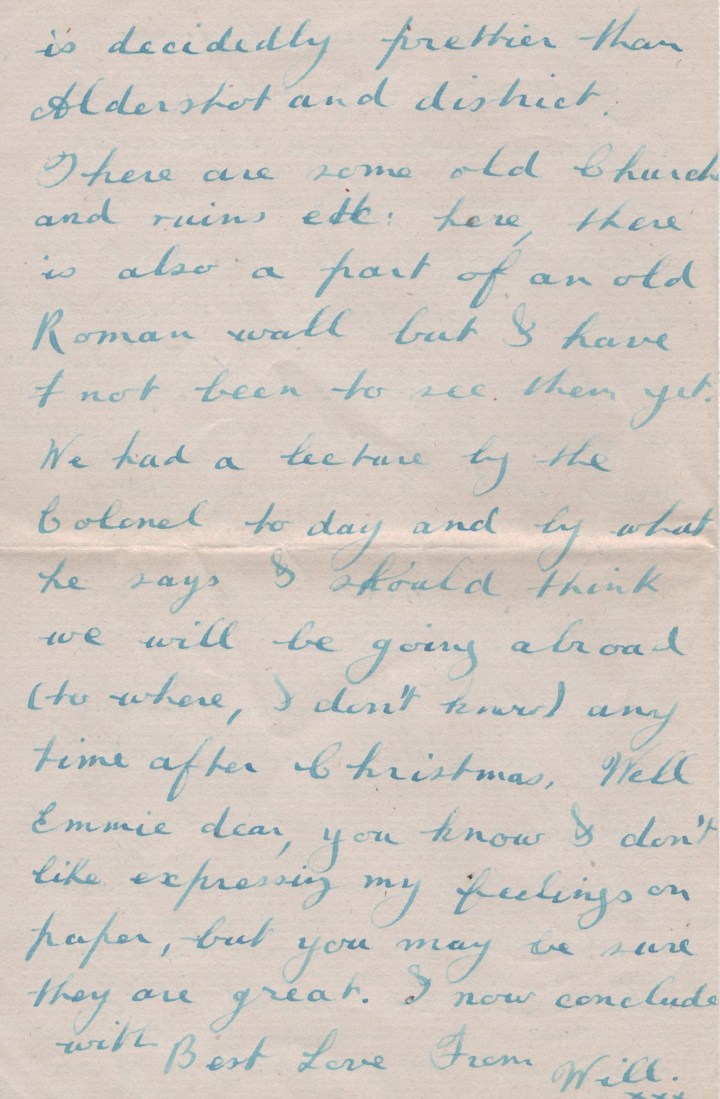 is decidedly prettier than
Aldershot and district.
There are some old Church
and ruins etc: here, there
is also a part of an old
Roman wall but I have
not been to see them yet.
We had a lecture by the
Colonel to day and by what
he says I should think
we will be going abroad
(to where, I don't know) any
time after Christmas. Well
Emmie dear, you know I don't
like expressing my feelings on
paper, but you may be sure
they are great. I now conclude
with Best Love From Will.
xxx